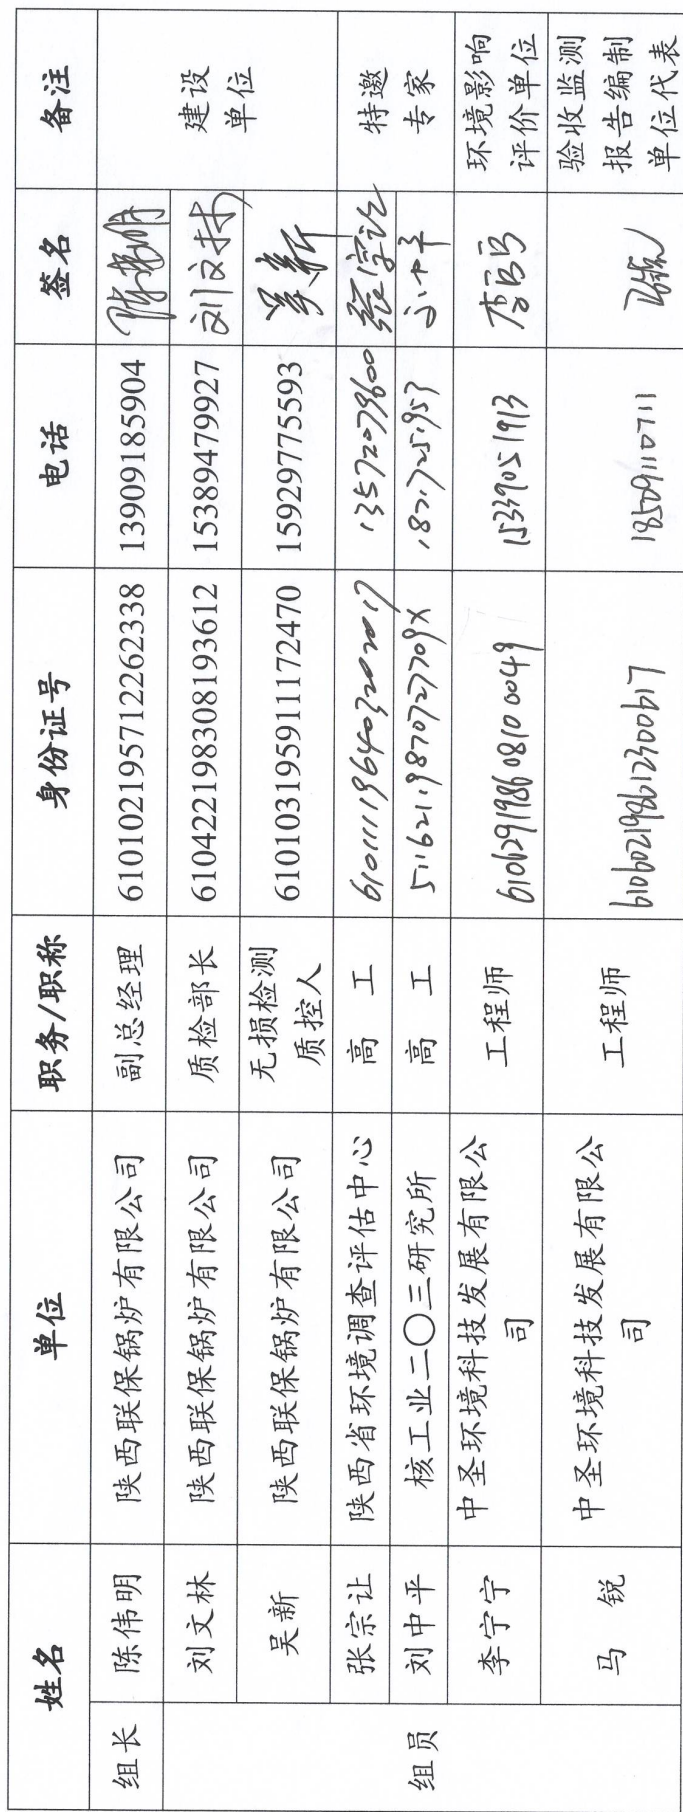 姓名 单位 职务/职称 身份证号 电话 签名 备注
组长 陈伟明 陕西联保锅炉有限公司 副总经理 610102195712262338 13909185904 建设
单位
刘文林 陕西联保锅炉有限公司 质检部长 610422198308193612 15389479927 刘文林
吴新 陕西联保锅炉有限公司 无损检测
质控人 610103195911172470 15929775593 吴新
组员
张宗让 陕西省环境调查评估中心 高 工 610111196403202017 特邀
专家
刘中平 核工业二〇三研究所 高 工 51162119870727709X
李宁宁 中圣环境科技发展有限公
司 工程师 610629198608100049 15339051913 李宁宁 环境影响
评价单位
马 锐 中圣环境科技发展有限公
司 工程师 610602198612300617 18509110711 验收监测
报告编制
单位代表